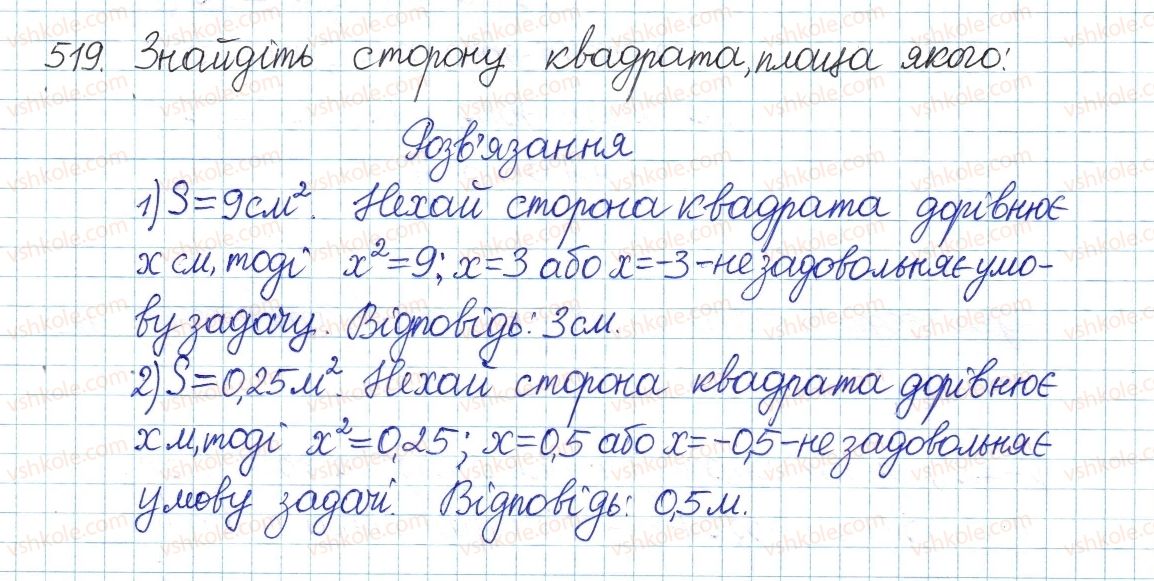 519. Знайдіть сторону квадрата, площа якого:
Розв'язання
1) S=9см². Нехай сторона квадрата дорівнює
x см, тоді x²=9; x=3 або x=-3-не задовольняє умо-
ву задачу. Відповідь: 3см.
2) S=0,25м². Нехай сторона квадрата дорівнює
x м, тоді x²=0,25; x=0,5 або x=-0,5-не задовольняє
умову задачі. Відповідь: 0,5м.